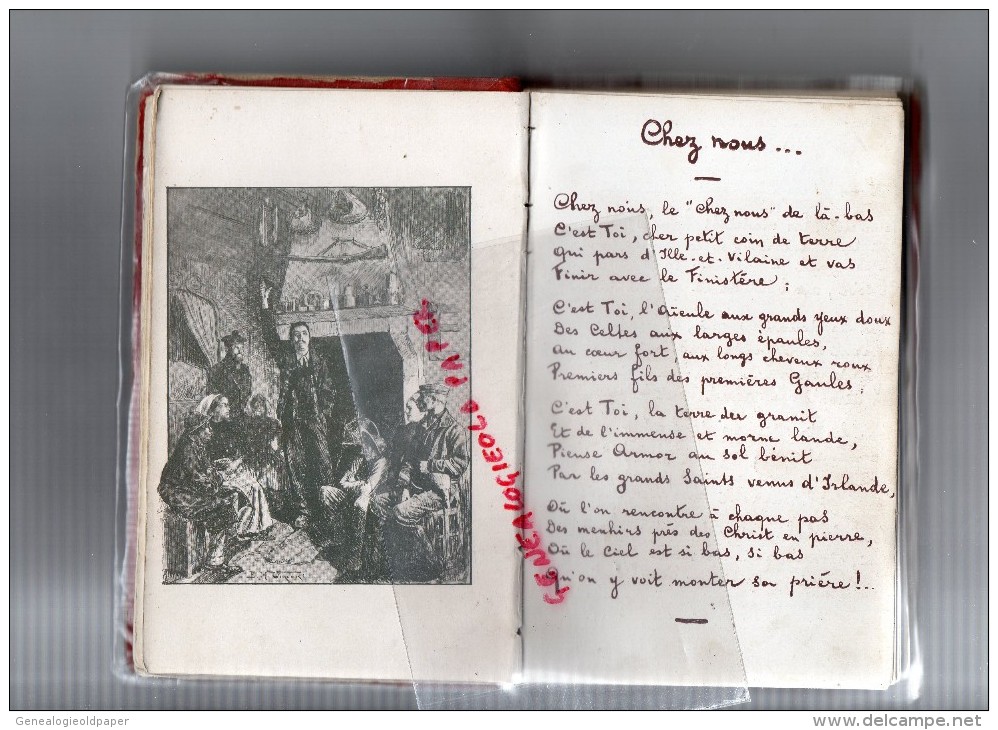 Chez nous...
Chez nous, le "Chez nous" de là-bas
C'est Toi, cher petit coin de terre
Qui pars d'Ille-et-Vilaine et vas
Finir avec le Finistère ;
C'est Toi, l'Aïeule aux grands yeux doux
Des Celtes aux larges épaules,
Au cœur fort, aux longs cheveux roux
Premiers fils des premières Gaules ;
C'est Toi, la terre du granit
Et de l'immense et morne lande,
Pieuse Armor au sol bénit
Par les grands Saints venus d'Irlande,
Où l'on rencontre à chaque pas
Des menhirs près des Christ en pierre,
Où le Ciel est si bas, si bas
Qu'on y voit monter sa prière !..
GENEALOGIEOLD PAPER
Genealogieoldpaper
www.delcampe.net